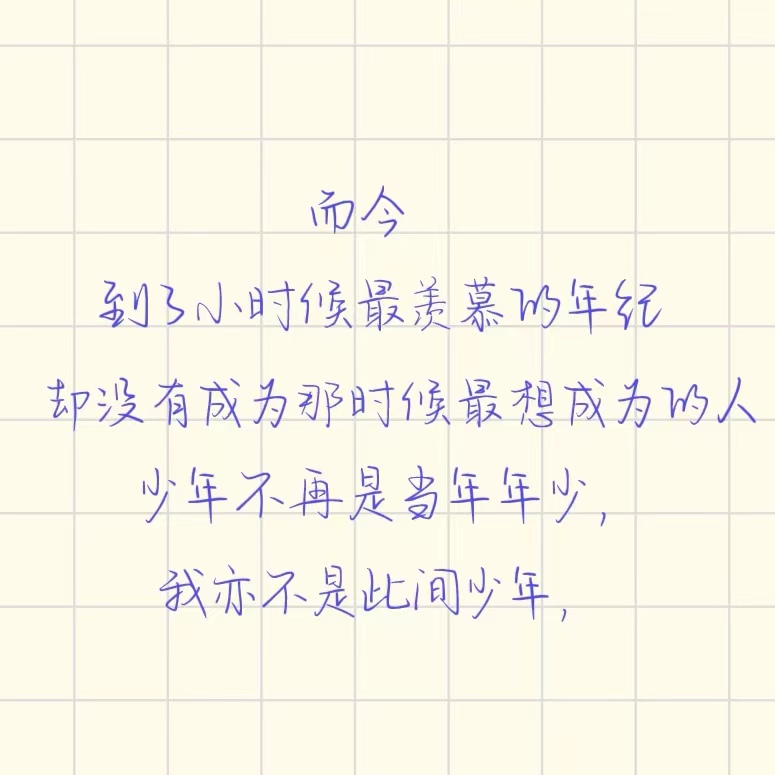 而今
到了小时候最羡慕的年纪
却没有成为那时候最想成为的人
少年不再是当年年少,
我亦不是此间少年,